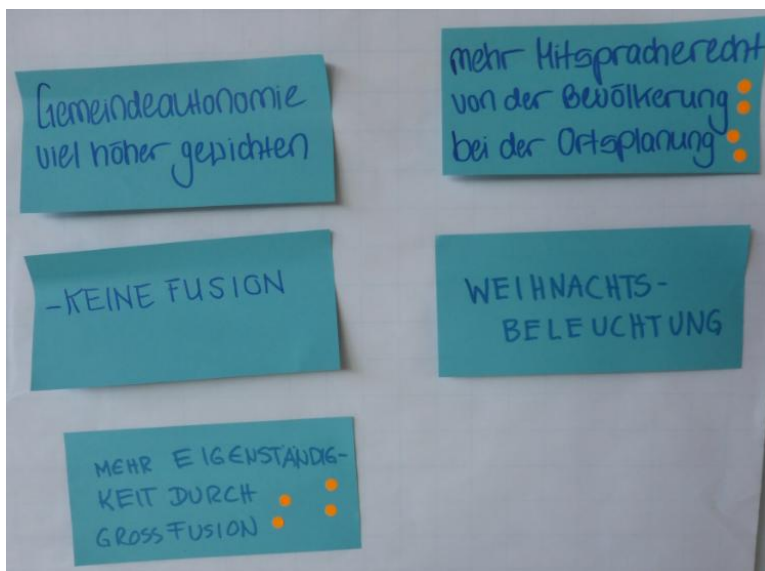 Gemeindeautonomie
viel höher gewichten
mehr Mitspracherecht
von der Bevölkerung
bei der Ortsplanung
-KEINE FUSION
WEIHNACHTS-
BELEUCHTUNG
MEHR EIGENSTÄNDIG-
KEIT DURCH
GROSSFUSION